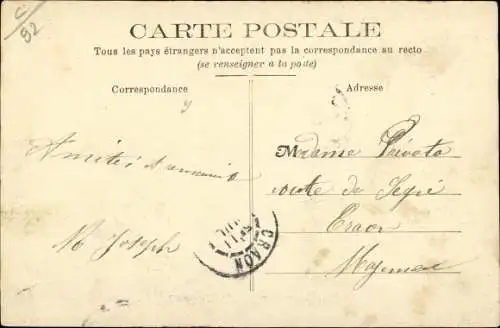 C/92
CARTE POSTALE
Tous les pays étrangers n'acceptent pas la correspondance au recto
(se renseigner a la poste)
Correspondance
Adresse
Amitiés
M Joseph
Madame Privata
route de Segré
Craon
Mayenne
CRAON